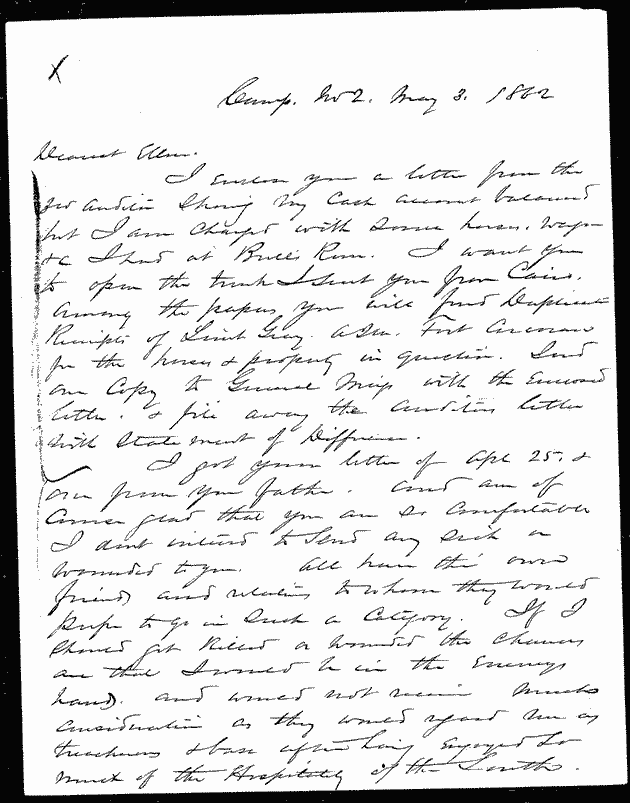 X
Camp. No 2. May 3. 1862
Dearest Ellen.
I enclose you a letter from the
2nd Auditor showing my Cash account balanced
but I am charged with some horses. wags
&c I had at Bull's Run. I want you
to open the trunk I sent you from Cairo.
Among the papers you will find Duplicate
Receipts of Lieut Gray. Fort Corcoran
for the horses & property in question. Send
one Copy to General Meigs with the Enclosed
letter. & file away the Auditors letter
with statement of Difference.
I got your letter of Apl 25. &
one from your father. and am of
course glad that you are so comfortable
I dont intend to send any sick or
wounded to you. All have their own
friends and relatives to whom they would
prefer to go in such a Category. If I
should get killed or wounded the chances
are that I would be in the Enemys
hands. and would not receive much
consideration as they would regard me as
treacherous & base after having enjoyed so
much of the Hospitality of the South.